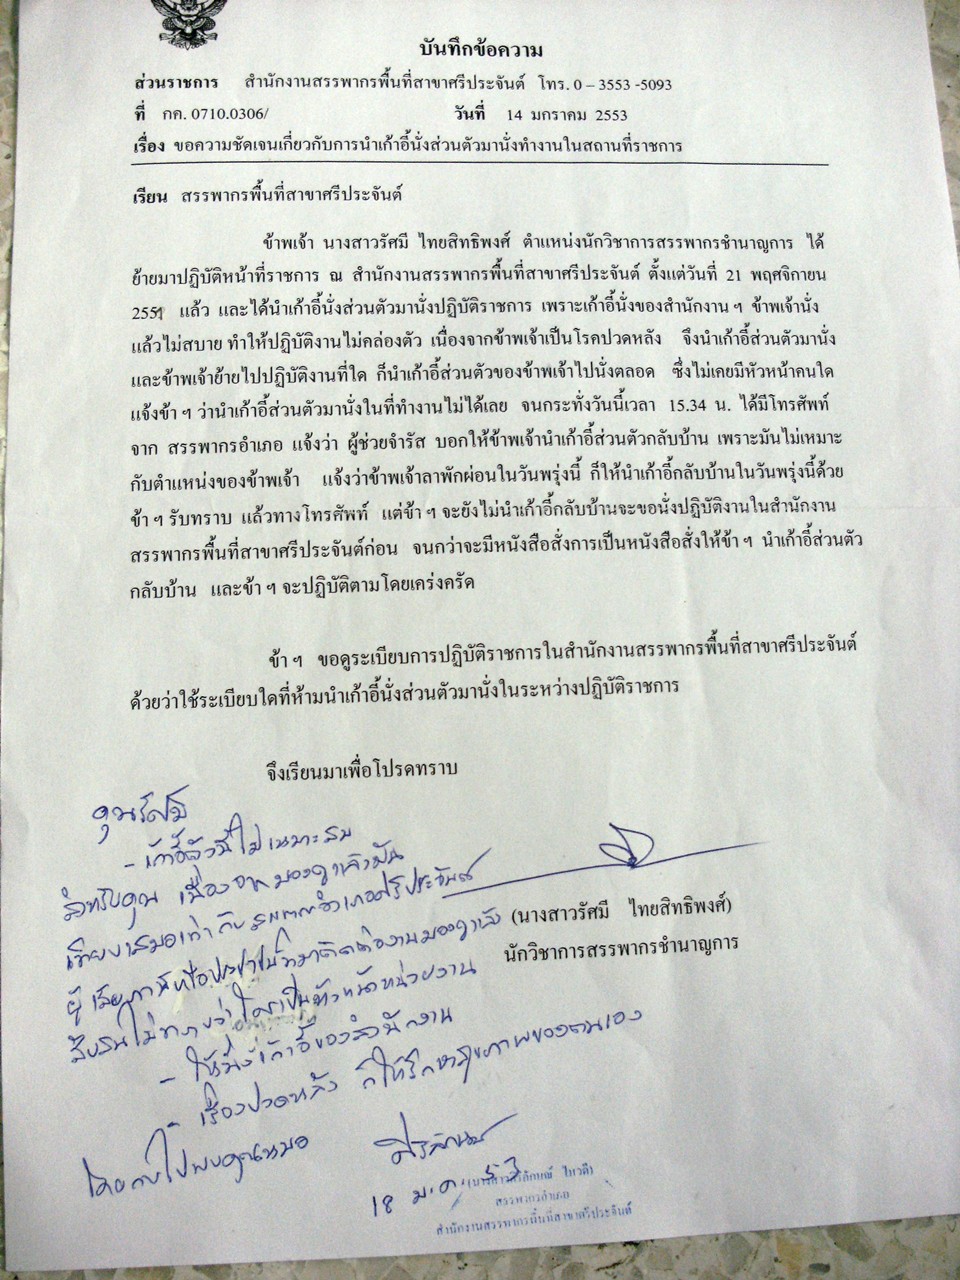 บันทึกข้อความ
ส่วนราชการ สำนักงานสรรพากรพื้นที่สาขาศรีประจันต์ โทร. 0 – 3553 -5093
ที่ กค. 0710.0306/ วันที่ 14 มกราคม 2553
เรื่อง ขอความชัดเจนเกี่ยวกับการนำเก้าอี้นั่งส่วนตัวมานั่งทำงานในสถานที่ราชการ
เรียน สรรพากรพื้นที่สาขาศรีประจันต์
ข้าพเจ้า นางสาวรัศมี ไทยสิทธิพงศ์ ตำแหน่งนักวิชาการสรรพากรชำนาญการ ได้
ย้ายมาปฏิบัติหน้าที่ราชการ ณ สำนักงานสรรพากรพื้นที่สาขาศรีประจันต์ ตั้งแต่วันที่ 21 พฤศจิกายน
2551 แล้ว และได้นำเก้าอี้นั่งส่วนตัวมานั่งปฏิบัติราชการ เพราะเก้าอี้นั่งของสำนักงาน ฯ ข้าพเจ้านั่ง
แล้วไม่สบาย ทำให้ปฏิบัติงานไม่คล่องตัว เนื่องจากข้าพเจ้าเป็นโรคปวดหลัง จึงนำเก้าอี้ส่วนตัวมานั่ง
และข้าพเจ้าย้ายไปปฏิบัติงานที่ใด ก็นำเก้าอี้ส่วนตัวของข้าพเจ้าไปนั่งตลอด ซึ่งไม่เคยมีหัวหน้าคนใด
แจ้งข้า ฯ ว่านำเก้าอี้ส่วนตัวมานั่งในที่ทำงานไม่ได้เลย จนกระทั่งวันนี้เวลา 15.34 น. ได้มีโทรศัพท์
จาก สรรพากรอำเภอ แจ้งว่า ผู้ช่วยจำรัส บอกให้ข้าพเจ้านำเก้าอี้ส่วนตัวกลับบ้าน เพราะมันไม่เหมาะ
กับตำแหน่งของข้าพเจ้า แจ้งว่าข้าพเจ้าลาพักผ่อนในวันพรุ่งนี้ ก็ให้นำเก้าอี้กลับบ้านในวันพรุ่งนี้ด้วย
ข้า ฯ รับทราบ แล้วทางโทรศัพท์ แต่ข้า ฯ จะยังไม่นำเก้าอี้กลับบ้านจะขอนั่งปฏิบัติงานในสำนักงาน
สรรพากรพื้นที่สาขาศรีประจันต์ก่อน จนกว่าจะมีหนังสือสั่งการเป็นหนังสือสั่งให้ข้า ฯ นำเก้าอี้ส่วนตัว
กลับบ้าน และข้า ฯ จะปฏิบัติตามโดยเคร่งครัด
ข้า ฯ ขอดูระเบียบการปฏิบัติราชการในสำนักงานสรรพากรพื้นที่สาขาศรีประจันต์
ด้วยว่าใช้ระเบียบใดที่ห้ามนำเก้าอี้นั่งส่วนตัวมานั่งในระหว่างปฏิบัติราชการ
จึงเรียนมาเพื่อโปรดทราบ
(นางสาวรัศมี ไทยสิทธิพงศ์)
นักวิชาการสรรพากรชำนาญการ
คุณรัศมี
- เก้าอี้ตัวนี้ไม่เหมาะสม
สำหรับคุณ เนื่องจากมองดูแล้วมัน
เทียบเสมอเท่ากับ อำเภอศรีประจันต์
ผู้เสียภาษีหรือประชาชนที่มาติดต่องานมองดูแล้ว
สับสนไม่ทราบว่าใครเป็นหัวหน้าหน่วยงาน
- ให้นั่งเก้าอี้ของสำนักงาน
เรื่องปวดหลัง ก็ให้รักษาสุขภาพของตนเอง
โดยกลับไปพบคุณหมอ
18 ม.ค. 53
สรรพากรอำเภอ
สำนักงานสรรพากรพื้นที่สาขาศรีประจันต์